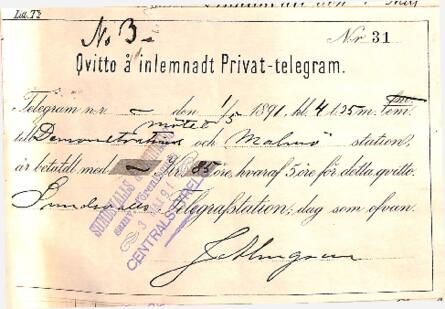 Litt. T²
No 3
Nr 31
Qvitto å inlemnadt Privat-telegram.
Telegram n:r — den 1/5 1891 kl. 4 t. 25 m. fm. em.
mötet
till Demonstrations och Malmö station,
är betaldt med 2 Kr. 85 öre, hvaraf 5 öre för detta qvitto.
Sundsvalls Telegrafstation, dag som ofvan.
SUNDSVALLS
3 MAJ 91
CENTRALSTYRELSE